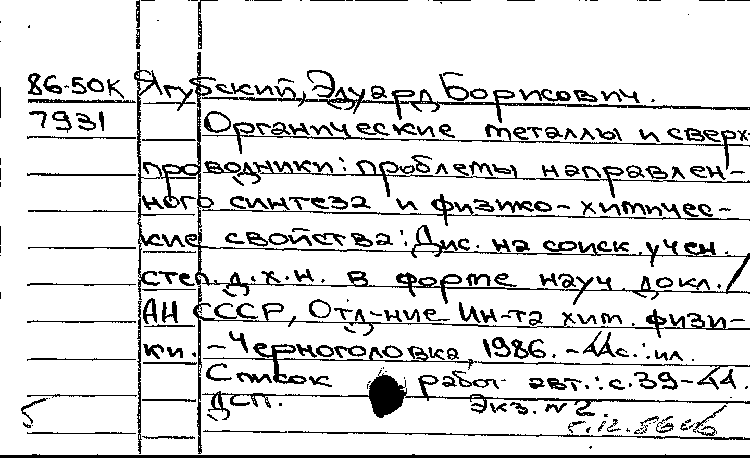 86-50К Ягубский, Эдуард Борисович.
7931 Органические металлы и сверх-
проводники: проблемы направлен-
ного синтеза и физико-химичес-
кие свойства: Дис. на соиск. учен.
степ. д.х.н. в форме науч. докл. /
АН СССР, Отд-ние Ин-та хим. физи-
ки. - Черноголовка, 1986. - 44с.: ил.
Список работ авт.: с. 39-44.
ДСП. Экз. №2
5